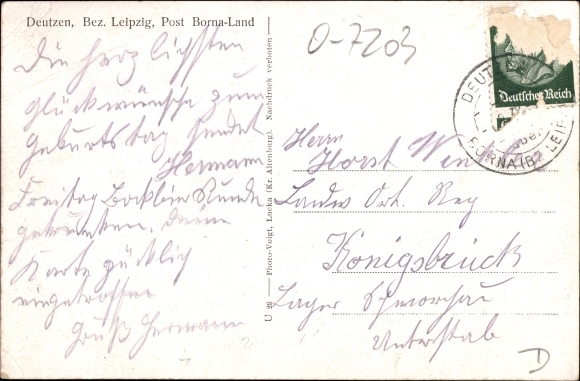 Deutzen, Bez. Leipzig, Post Borna-Land
O-7203
Die herzlichsten
Glückwünsche zum
Geburtstag sendet
Hermann
Freitag Bockbier Runde
getrunken. Deine
Karte glücklich
eingetroffen
Gruß Hermann
U 29 — Photo-Voigt, Lucka (Kr. Altenburg). Nachdruck verboten —
Deutsches Reich
DEUTZEN
BORNA (BZ. LEIPZ
Herrn
Horst
Landes Ort. Reg
Königsbrück
Lager Schmorkau
Unterstab
D